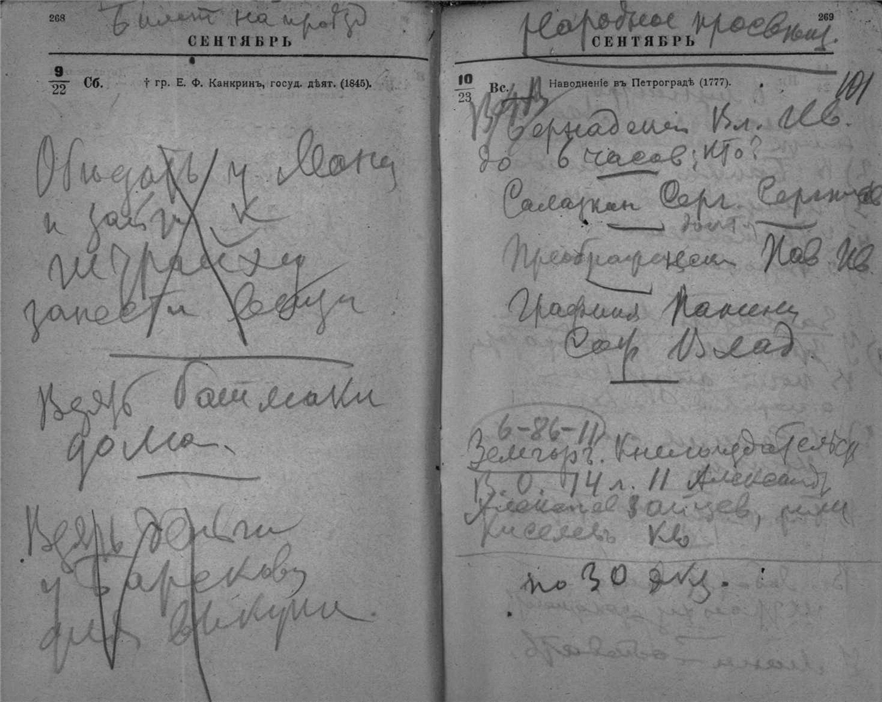 268
Билет на проезд
СЕНТЯБРЬ
9/22 Сб. † гр. Е. Ф. Канкринъ, госуд. дѣят. (1845).
Обедать у Мани
и зайти к
занести вещи
Взять башмаки
дома.
Взять деньги
у
для
269
Народное просвещ.
СЕНТЯБРЬ
10/23 Вс. Наводненіе въ Петроградѣ (1777).
101
Вернадский Вл. Ив.
до 6 часов; кто?
Салазкин Серг. Сергеев
Преображенский Пав. Ив.
Графиня Панина
Соф. Влад.
6-86-11
Земгоръ. Книгоиздательск
В. О. 14 л. 11 Александр
Зайцев, или
Киселевъ
по 30 экз.